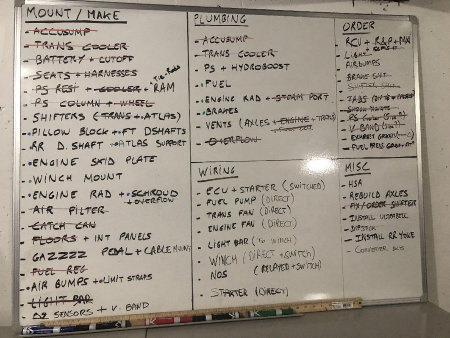 MOUNT / MAKE
- ACCUSUMP
- TRANS COOLER
- BATTERY + CUTOFF
- SEATS + HARNESSES
- PS RESI + COOLER + RAM
- PS COLUMN + WHEEL
- SHIFTERS (TRANS + ATLAS)
- PILLOW BLOCK + FT DSHAFTS
- RR D. SHAFT + ATLAS SUPPORT
- ENGINE SKID PLATE
- WINCH MOUNT
- ENGINE RAD + SHROUD
+ OVERFLOW
- AIR FILTER
- CATCH CAN
- FLOORS + INT PANELS
- GAZZZZ PEDAL + CABLE MOUNT
- FUEL REG
- AIR BUMPS + LIMIT STRAPS
- LIGHT BAR
- O2 SENSORS + V. BAND
PLUMBING
- ACCUSUMP
- TRANS COOLER
- PS + HYDROBOOST
- FUEL
- ENGINE RAD + STORM PORT
- BRAKES
- VENTS (AXLES + ENGINE + TRANS)
- OVERFLOW
WIRING
- ECU + STARTER (SWITCHED)
- FUEL PUMP (DIRECT)
- TRANS FAN (DIRECT)
- ENGINE FAN (DIRECT)
- LIGHT BAR (TO WINCH)
- WINCH (DIRECT + SWITCH)
- NOS (RELAYED + SWITCH)
- STARTER (DIRECT)
ORDER
- RCU + R&P + PAN
- LIGHT
- AIRBUMPS
- BRAKE
- TABS
- PS
- V-BAND
- EXHAUST
- FUEL PRESS
MISC
- HSA
- REBUILD AXLES
- FIX/ORDER SHIFTER
- INSTALL
- DIPSTICK
- INSTALL RR YOKE
- CONVERTER